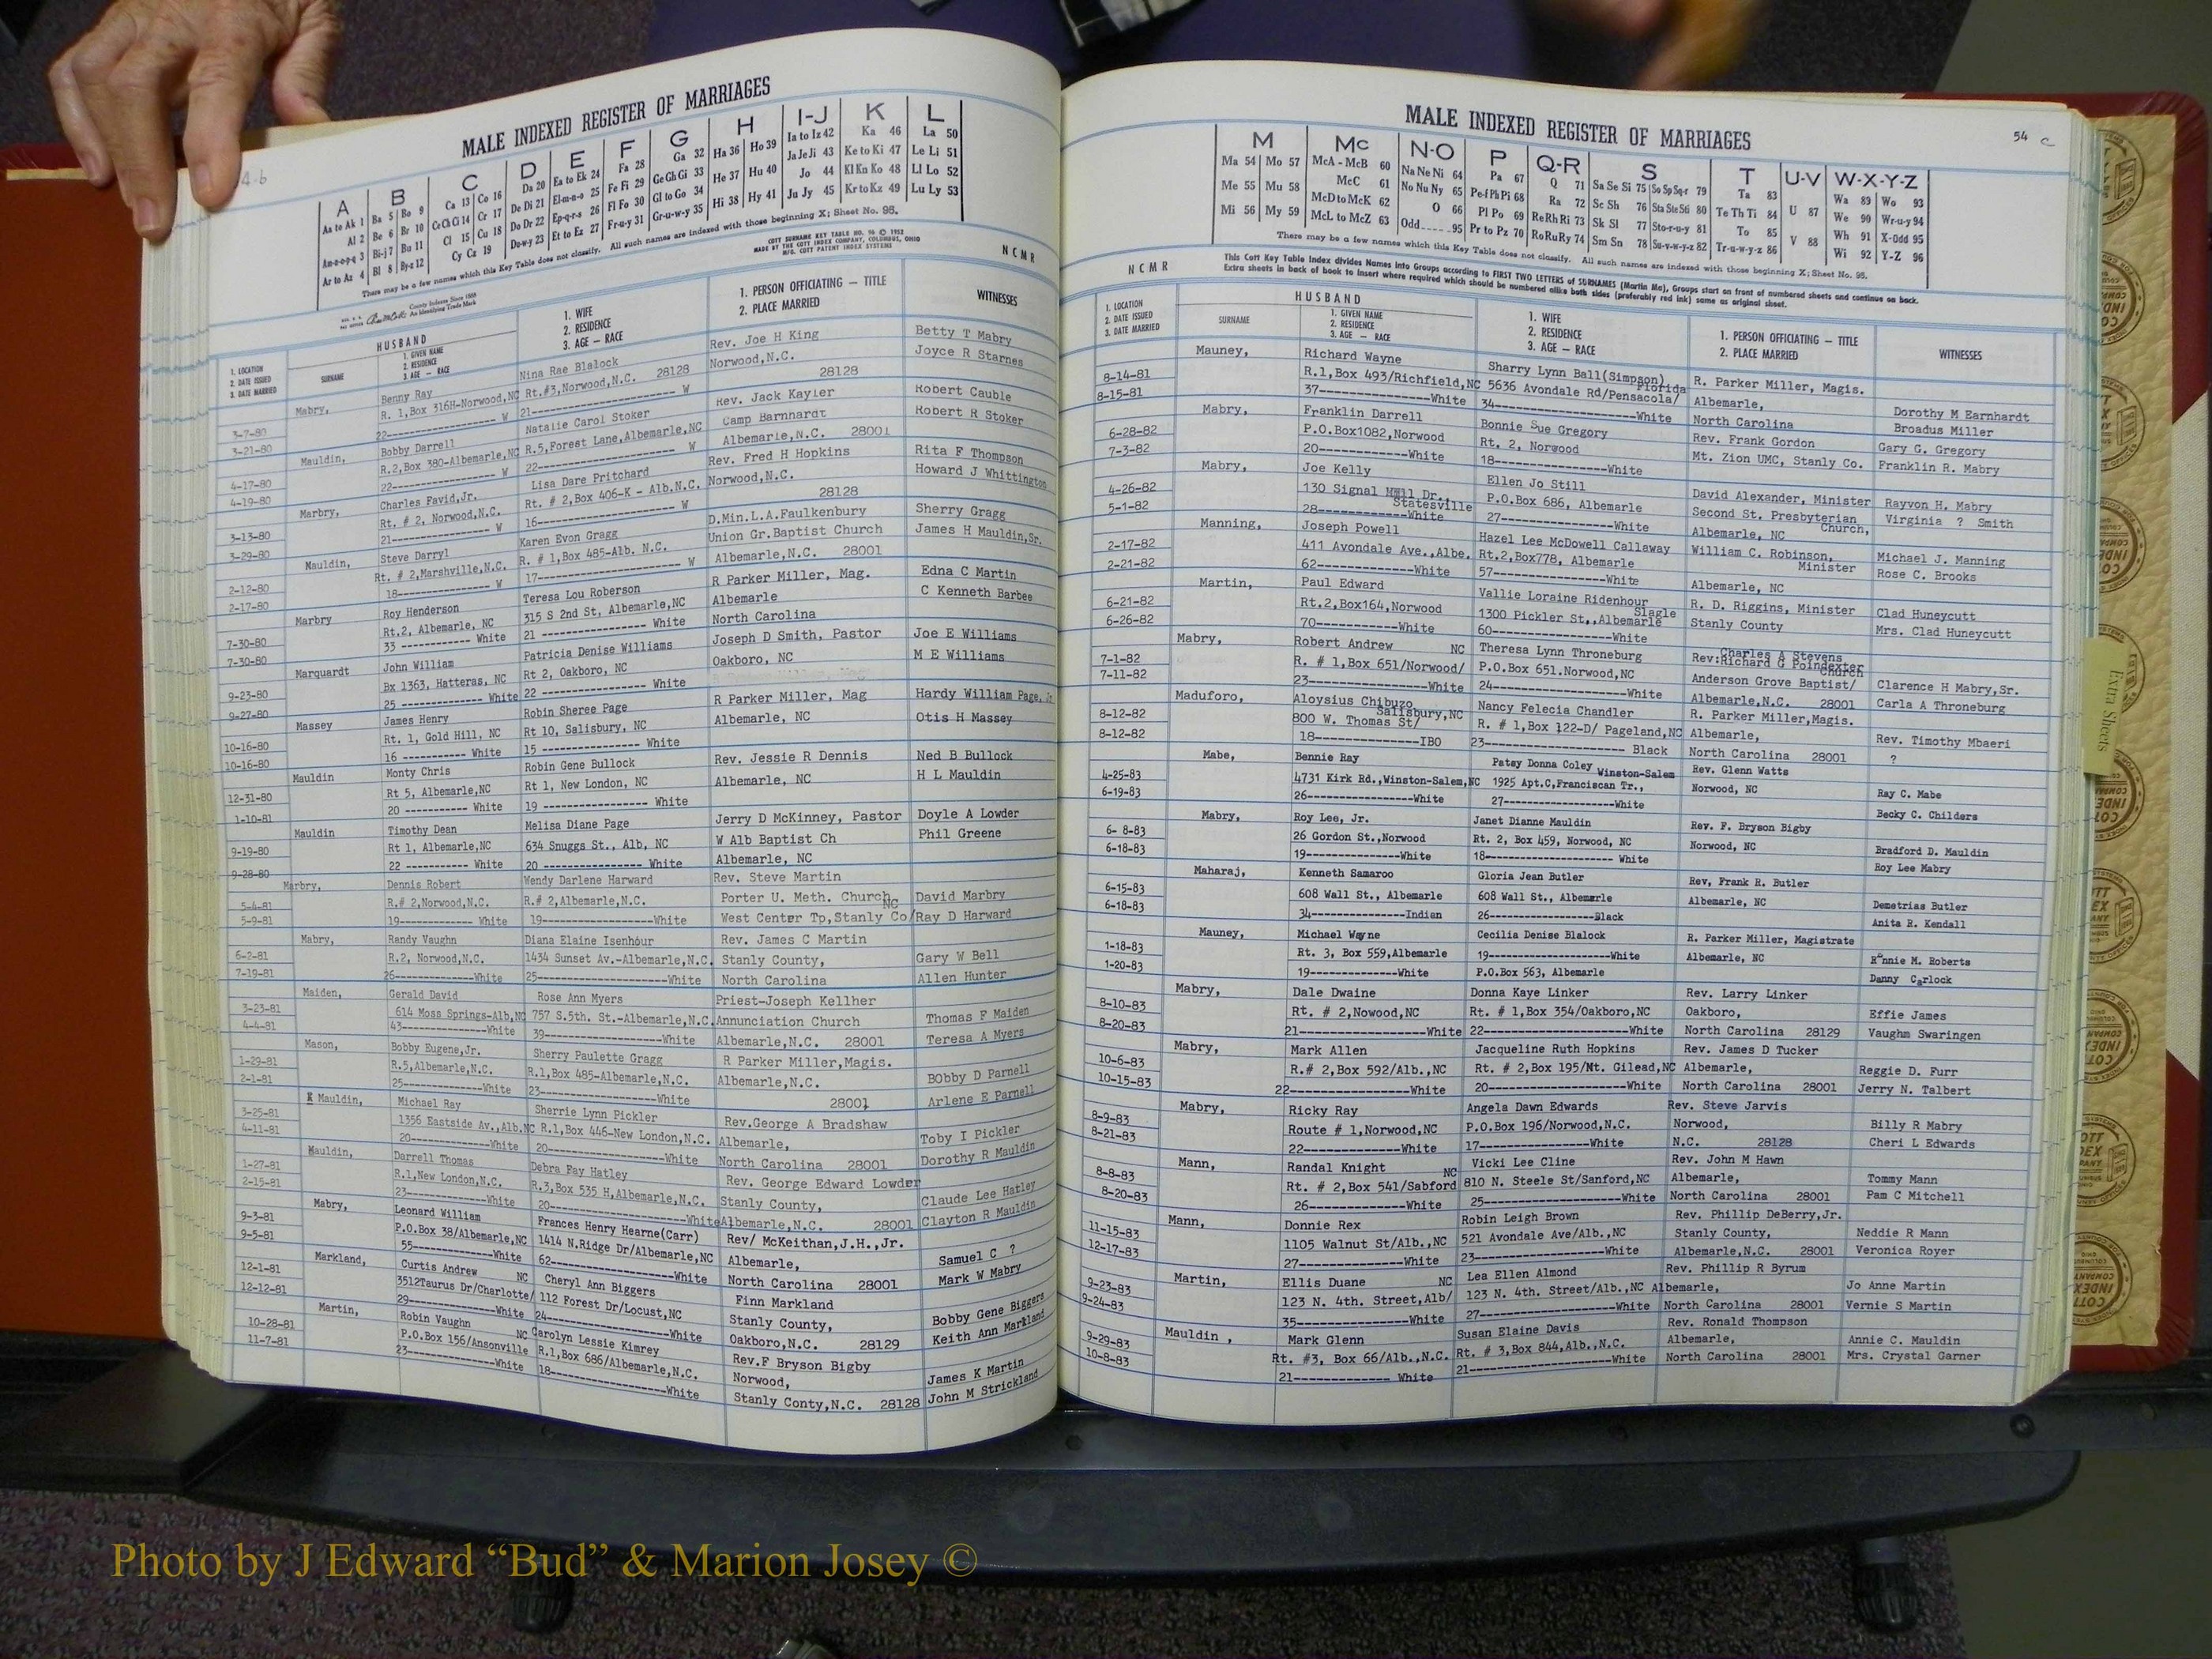 4-b
MALE INDEXED REGISTER OF MARRIAGES
A B C D E F G H I-J K L
Aa to Ak 1 Ba 5 Bo 9 Ca 13 Co 16 Da 20 Ea to Ek 24 Fa 28 Ga 32 Ha 36 Ho 39 Ia to Iz 42 Ka 46 La 50
Al 2 Be 6 Br 10 Ce Ch Ci 14 Cr 17 De Di 21 El-m-n-o 25 Fe Fi 29 Ge Gh Gi 33 He 37 Hu 40 Ja Je Ji 43 Ke to Ki 47 Le Li 51
An-e-o-p-q 3 Bi-j 7 Bu 11 Cl 15 Cu 18 Do Dr 22 Ep-q-r-s 26 Fl Fo 30 Gl to Go 34 Hi 38 Hy 41 Jo 44 Kl Kn Ko 48 Ll Lo 52
Ar to Az 4 Bl 8 By-z 12 Cy Cz 19 Du-w-y 23 Et to Ez 27 Fr-u-y 31 Gr-u-w-y 35 Ju Jy 45 Kr to Kz 49 Lu Ly 53
There may be a few names which this Key Table does not classify. All such names are indexed with those beginning X; Sheet No. 95.
County Indexes Since 1888
An Identifying Trade Mark
COTT SURNAME KEY TABLE NO. 96 © 1952
MADE BY THE COTT INDEX COMPANY, COLUMBUS, OHIO
MFG. COTT PATENT INDEX SYSTEMS
NCMR
1. LOCATION
2. DATE ISSUED
3. DATE MARRIED
HUSBAND
SURNAME
1. GIVEN NAME
2. RESIDENCE
3. AGE — RACE
1. WIFE
2. RESIDENCE
3. AGE — RACE
1. PERSON OFFICIATING — TITLE
2. PLACE MARRIED
WITNESSES
Mabry, Benny Ray Nina Rae Blalock Rev. Joe H King Betty T Mabry
3-7-80 R. 1,Box 316H-Norwood,NC Rt.#3,Norwood,N.C. 28128 Norwood,N.C. Joyce R Starnes
3-21-80 22---------------- W 21---------------- W 28128
Mauldin, Bobby Darrell Natalie Carol Stoker Rev. Jack Kayler Robert Cauble
4-17-80 R.2,Box 380-Albemarle,NC R.5,Forest Lane,Albemarle,NC Camp Barnhardt Robert R Stoker
4-19-80 22---------------- W 22---------------- W Albemarle,N.C. 28001
Marbry, Charles Favid,Jr. Lisa Dare Pritchard Rev. Fred H Hopkins Rita F Thompson
3-13-80 Rt. # 2, Norwood,N.C. Rt. # 2,Box 406-K - Alb.N.C. Norwood,N.C. Howard J Whittington
3-29-80 21---------------- W 16---------------- W 28128
Mauldin, Steve Darryl Karen Evon Gragg D.Min.L.A.Faulkenbury Sherry Gragg
2-12-80 Rt. # 2,Marshville,N.C. R. # 1,Box 485-Alb. N.C. Union Gr.Baptist Church James H Mauldin,Sr.
2-17-80 18---------------- W 17---------------- W Albemarle,N.C. 28001
Marbry Roy Henderson Teresa Lou Roberson R Parker Miller, Mag. Edna C Martin
7-30-80 Rt.2, Albemarle, NC 315 S 2nd St, Albemarle,NC Albemarle C Kenneth Barbee
7-30-80 33 ---------- White 21 --------------- White North Carolina
Marquardt John William Patricia Denise Williams Joseph D Smith, Pastor Joe E Williams
9-23-80 Bx 1363, Hatteras, NC Rt 2, Oakboro, NC Oakboro, NC M E Williams
9-27-80 25 ------------- White 22 --------------- White
Massey James Henry Robin Sheree Page R Parker Miller, Mag Hardy William Page, Jr
10-16-80 Rt. 1, Gold Hill, NC Rt 10, Salisbury, NC Albemarle, NC Otis H Massey
10-16-80 16 ----------- White 15 -------------- White
Mauldin Monty Chris Robin Gene Bullock Rev. Jessie R Dennis Ned B Bullock
12-31-80 Rt 5, Albemarle,NC Rt 1, New London, NC Albemarle, NC H L Mauldin
1-10-81 20 ----------- White 19 ---------------- White
Mauldin Timothy Dean Melisa Diane Page Jerry D McKinney, Pastor Doyle A Lowder
9-19-80 Rt 1, Albemarle,NC 634 Snuggs St., Alb, NC W Alb Baptist Ch Phil Greene
9-28-80 22 ----------- White 20 --------------- White Albemarle, NC
Marbry, Dennis Robert Wendy Darlene Harward Rev. Steve Martin
5-4-81 R.# 2,Norwood,N.C. R.# 2,Albemarle,N.C. Porter U. Meth. Church David Marbry
5-9-81 19------------ White 19-----------------White West Center Tp,Stanly Co/NC Ray D Harward
Mabry, Randy Vaughn Diana Elaine Isenhour Rev. James C Martin
6-2-81 R.2, Norwood,N.C. 1434 Sunset Av.-Albemarle,N.C. Stanly County, Gary W Bell
7-19-81 26-------------White 25--------------------White North Carolina Allen Hunter
Maiden, Gerald David Rose Ann Myers Priest-Joseph Kellher
3-23-81 614 Moss Springs-Alb,NC 757 S.5th. St.-Albemarle,N.C. Annunciation Church Thomas F Maiden
4-4-81 43-------------White 39------------------White Albemarle,N.C. 28001 Teresa A Myers
Mason, Bobby Eugene,Jr. Sherry Paulette Gragg R Parker Miller,Magis.
1-29-81 R.5,Albemarle,N.C. R.1,Box 485-Albemarle,N.C. Albemarle,N.C. BObby D Parnell
2-1-81 25-------------White 23------------------White 28001 Arlene E Parnell
X Mauldin, Michael Ray Sherrie Lynn Pickler Rev.George A Bradshaw
3-25-81 1356 Eastside Av.,Alb.NC R.1,Box 446-New London,N.C. Albemarle, Toby I Pickler
4-11-81 20-------------White 20------------------White North Carolina 28001 Dorothy R Mauldin
Mauldin, Darrell Thomas Debra Fay Hatley Rev. George Edward Lowder
1-27-81 R.1,New London,N.C. R.3,Box 535 H,Albemarle,N.C. Stanly County, Claude Lee Hatley
2-15-81 23-------------White 20--------------------White Albemarle,N.C. 28001 Clayton R Mauldin
Mabry, Leonard William Frances Henry Hearne(Carr) Rev/ McKeithan,J.H.,Jr.
9-3-81 P.O.Box 38/Albemarle,NC 1414 N.Ridge Dr/Albemarle,NC Albemarle, Samuel C ?
9-5-81 55-------------White 62------------------White North Carolina 28001 Mark W Mabry
Markland, Curtis Andrew Cheryl Ann Biggers Finn Markland
12-1-81 3512Taurus Dr/Charlotte/NC 112 Forest Dr/Locust,NC Stanly County, Bobby Gene Biggers
12-12-81 29-------------White 24------------------White Oakboro,N.C. 28129 Keith Ann Markland
Martin, Robin Vaughn Carolyn Lessie Kimrey Rev.F Bryson Bigby
10-28-81 P.O.Box 156/Ansonville NC R.1,Box 686/Albemarle,N.C. Norwood, James K Martin
11-7-81 23-------------White 18------------------White Stanly Conty,N.C. 28128 John M Strickland
54 c
MALE INDEXED REGISTER OF MARRIAGES
M Mc N-O P Q-R S T U-V W-X-Y-Z
Ma 54 Mo 57 McA - McB 60 Na Ne Ni 64 Pa 67 Q 71 Sa Se Si 75 So Sp Sq-r 79 Ta 83 U 87 Wa 89 Wo 93
Me 55 Mu 58 McC 61 No Nu Ny 65 Pe-f Ph Pi 68 Ra 72 Sc Sh 76 Sta Ste Sti 80 Te Th Ti 84 V 88 We 90 Wr-u-y 94
Mi 56 My 59 McD to McK 62 O 66 Pl Po 69 Re Rh Ri 73 Sk Sl 77 Sto-r-u-y 81 To 85 Wh 91 X-Odd 95
McL to McZ 63 Odd 95 Pr to Pz 70 Ro Ru Ry 74 Sm Sn 78 Su-v-w-y-z 82 Tr-u-w-y-z 86 Wi 92 Y-Z 96
There may be a few names which this Key Table does not classify. All such names are indexed with those beginning X; Sheet No. 95.
NCMR
This Cott Key Table Index divides Names into Groups according to FIRST TWO LETTERS of SURNAMES (Martin Ma), Groups start on front of numbered sheets and continue on back.
Extra sheets in back of book to insert where required which should be numbered alike both sides (preferably red ink) same as original sheet.
1. LOCATION
2. DATE ISSUED
3. DATE MARRIED
HUSBAND
SURNAME
1. GIVEN NAME
2. RESIDENCE
3. AGE — RACE
1. WIFE
2. RESIDENCE
3. AGE — RACE
1. PERSON OFFICIATING — TITLE
2. PLACE MARRIED
WITNESSES
Mauney, Richard Wayne Sharry Lynn Ball(Simpson) R. Parker Miller, Magis.
8-14-81 R.1,Box 493/Richfield,NC 5636 Avondale Rd/Pensacola/Florida Albemarle, Dorothy M Earnhardt
8-15-81 37--------------White 34-----------------White North Carolina Broadus Miller
Mabry, Franklin Darrell Bonnie Sue Gregory Rev. Frank Gordon Gary G. Gregory
6-28-82 P.O.Box1082,Norwood Rt. 2, Norwood Mt. Zion UMC, Stanly Co. Franklin R. Mabry
7-3-82 20------------White 18--------------White
Mabry, Joe Kelly Ellen Jo Still David Alexander, Minister Rayvon H. Mabry
4-26-82 130 Signal Hill Dr., Statesville P.O.Box 686, Albemarle Second St. Presbyterian Church, Virginia ? Smith
5-1-82 28------------White 27--------------White Albemarle, NC
Manning, Joseph Powell Hazel Lee McDowell Callaway William C. Robinson, Minister Michael J. Manning
2-17-82 411 Avondale Ave.,Albe. Rt.2,Box778, Albemarle Rose C. Brooks
2-21-82 62------------White 57--------------White Albemarle, NC
Martin, Paul Edward Vallie Loraine Ridenhour Slagle R. D. Riggins, Minister Clad Huneycutt
6-21-82 Rt.2,Box164,Norwood 1300 Pickler St,,Albemarle Stanly County Mrs. Clad Huneycutt
6-26-82 70------------White 60--------------White
Mabry, Robert Andrew Theresa Lynn Throneburg Charles A Stevens
Rev:Richard G Poindexter
7-1-82 R. # 1,Box 651/Norwood/NC P.O.Box 651.Norwood,NC Anderson Grove Baptist/Church Clarence H Mabry,Sr.
7-11-82 23---------------White 24------------------White Albemarle,N.C. 28001 Carla A Throneburg
Maduforo, Aloysius Chibuzo Nancy Felecia Chandler R. Parker Miller,Magis.
8-12-82 800 W. Thomas St/Salisbury,NC R. # 1,Box 122-D/ Pageland,NC Albemarle, Rev. Timothy Mbaeri
8-12-82 18---------------IBO 23------------------ Black North Carolina 28001 ?
Mabe, Bennie Ray Patsy Donna Coley Rev. Glenn Watts
4-25-83 4731 Kirk Rd.,Winston-Salem,NC 1925 Apt.C,Franciscan Tr., Winston-Salem Norwood, NC Ray C. Mabe
6-19-83 26----------------White 27---------------------White Becky C. Childers
Mabry, Roy Lee, Jr. Janet Dianne Mauldin Rev. F. Bryson Bigby
6- 8-83 26 Gordon St.,Norwood Rt. 2, Box 459, Norwood, NC Norwood, NC Bradford D. Mauldin
6-18-83 19--------------White 18--------------------- White Roy Lee Mabry
Maharaj, Kenneth Samaroo Gloria Jean Butler Rev, Frank R. Butler
6-15-83 608 Wall St., Albemarle 608 Wall St., Albemarle Albemarle, NC Demetrias Butler
6-18-83 34---------------Indian 26---------------Black Anita R. Kendall
Mauney, Michael Wayne Cecilia Denise Blalock R. Parker Miller, Magistrate
1-18-83 Rt. 3, Box 559,Albemarle 19--------------------White Albemarle, NC Ronnie M. Roberts
1-20-83 19--------------White P.O.Box 563, Albemarle Danny Carlock
Mabry, Dale Dwaine Donna Kaye Linker Rev. Larry Linker
8-10-83 Rt. # 2,Nowood,NC Rt. # 1,Box 354/Oakboro,NC Oakboro, Effie James
8-20-83 21------------------White 22------------------White North Carolina 28129 Vaughm Swaringen
Mabry, Mark Allen Jacqueline Ruth Hopkins Rev. James D Tucker
10-6-83 R.# 2,Box 592/Alb.,NC Rt. # 2,Box 195/Mt. Gilead,NC Albemarle, Reggie D. Furr
10-15-83 22---------------White 20------------------White North Carolina 28001 Jerry N. Talbert
Mabry, Ricky Ray Angela Dawn Edwards Rev. Steve Jarvis
8-9-83 Route # 1,Norwood,NC P.O.Box 196/Norwood,N.C. Norwood, Billy R Mabry
8-21-83 22--------------White 17-----------------White N.C. 28128 Cheri L Edwards
Mann, Randal Knight Vicki Lee Cline Rev. John M Hawn
8-8-83 Rt. # 2,Box 541/Sabford NC 810 N. Steele St/Sanford,NC Albemarle, Tommy Mann
8-20-83 26--------------White 25------------------White North Carolina 28001 Pam C Mitchell
Mann, Donnie Rex Robin Leigh Brown Rev. Phillip DeBerry,Jr.
11-15-83 1105 Walnut St/Alb.,NC 521 Avondale Ave/Alb.,NC Stanly County, Neddie R Mann
12-17-83 27--------------White 23------------------White Albemarle,N.C. 28001 Veronica Royer
Martin, Ellis Duane Lea Ellen Almond Rev. Phillip R Byrum
9-23-83 123 N. 4th. Street,Alb/NC 123 N. 4th. Street/Alb.,NC Albemarle, Jo Anne Martin
9-24-83 35---------------White 27------------------White North Carolina 28001 Vernie S Martin
Mauldin , Mark Glenn Susan Elaine Davis Rev. Ronald Thompson
9-29-83 Rt. #3, Box 66/Alb.,N.C. Rt. # 3,Box 844,Alb.,N.C. Albemarle, Annie C. Mauldin
10-8-83 21-------------- White 21------------------White North Carolina 28001 Mrs. Crystal Garner
Extra Sheets
Photo by J Edward “Bud” & Marion Josey ©